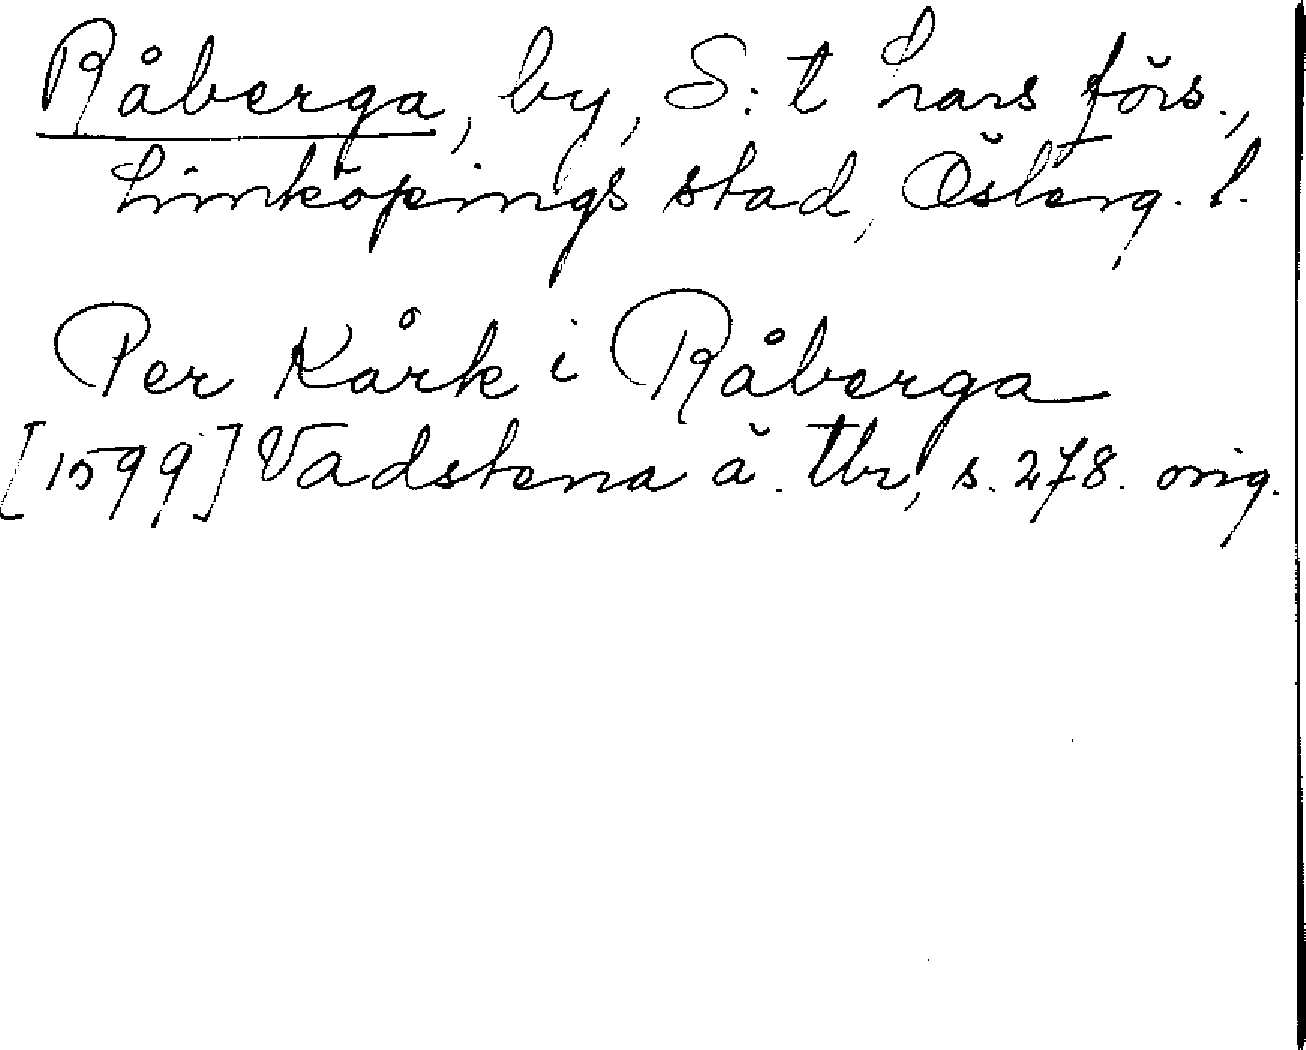 Råberga, by, S:t Lars förs.,
Linköpings stad, Österg. l.
Per Kårk i Råberga
[1599] Vadstena ä. tbr, s. 278. orig.